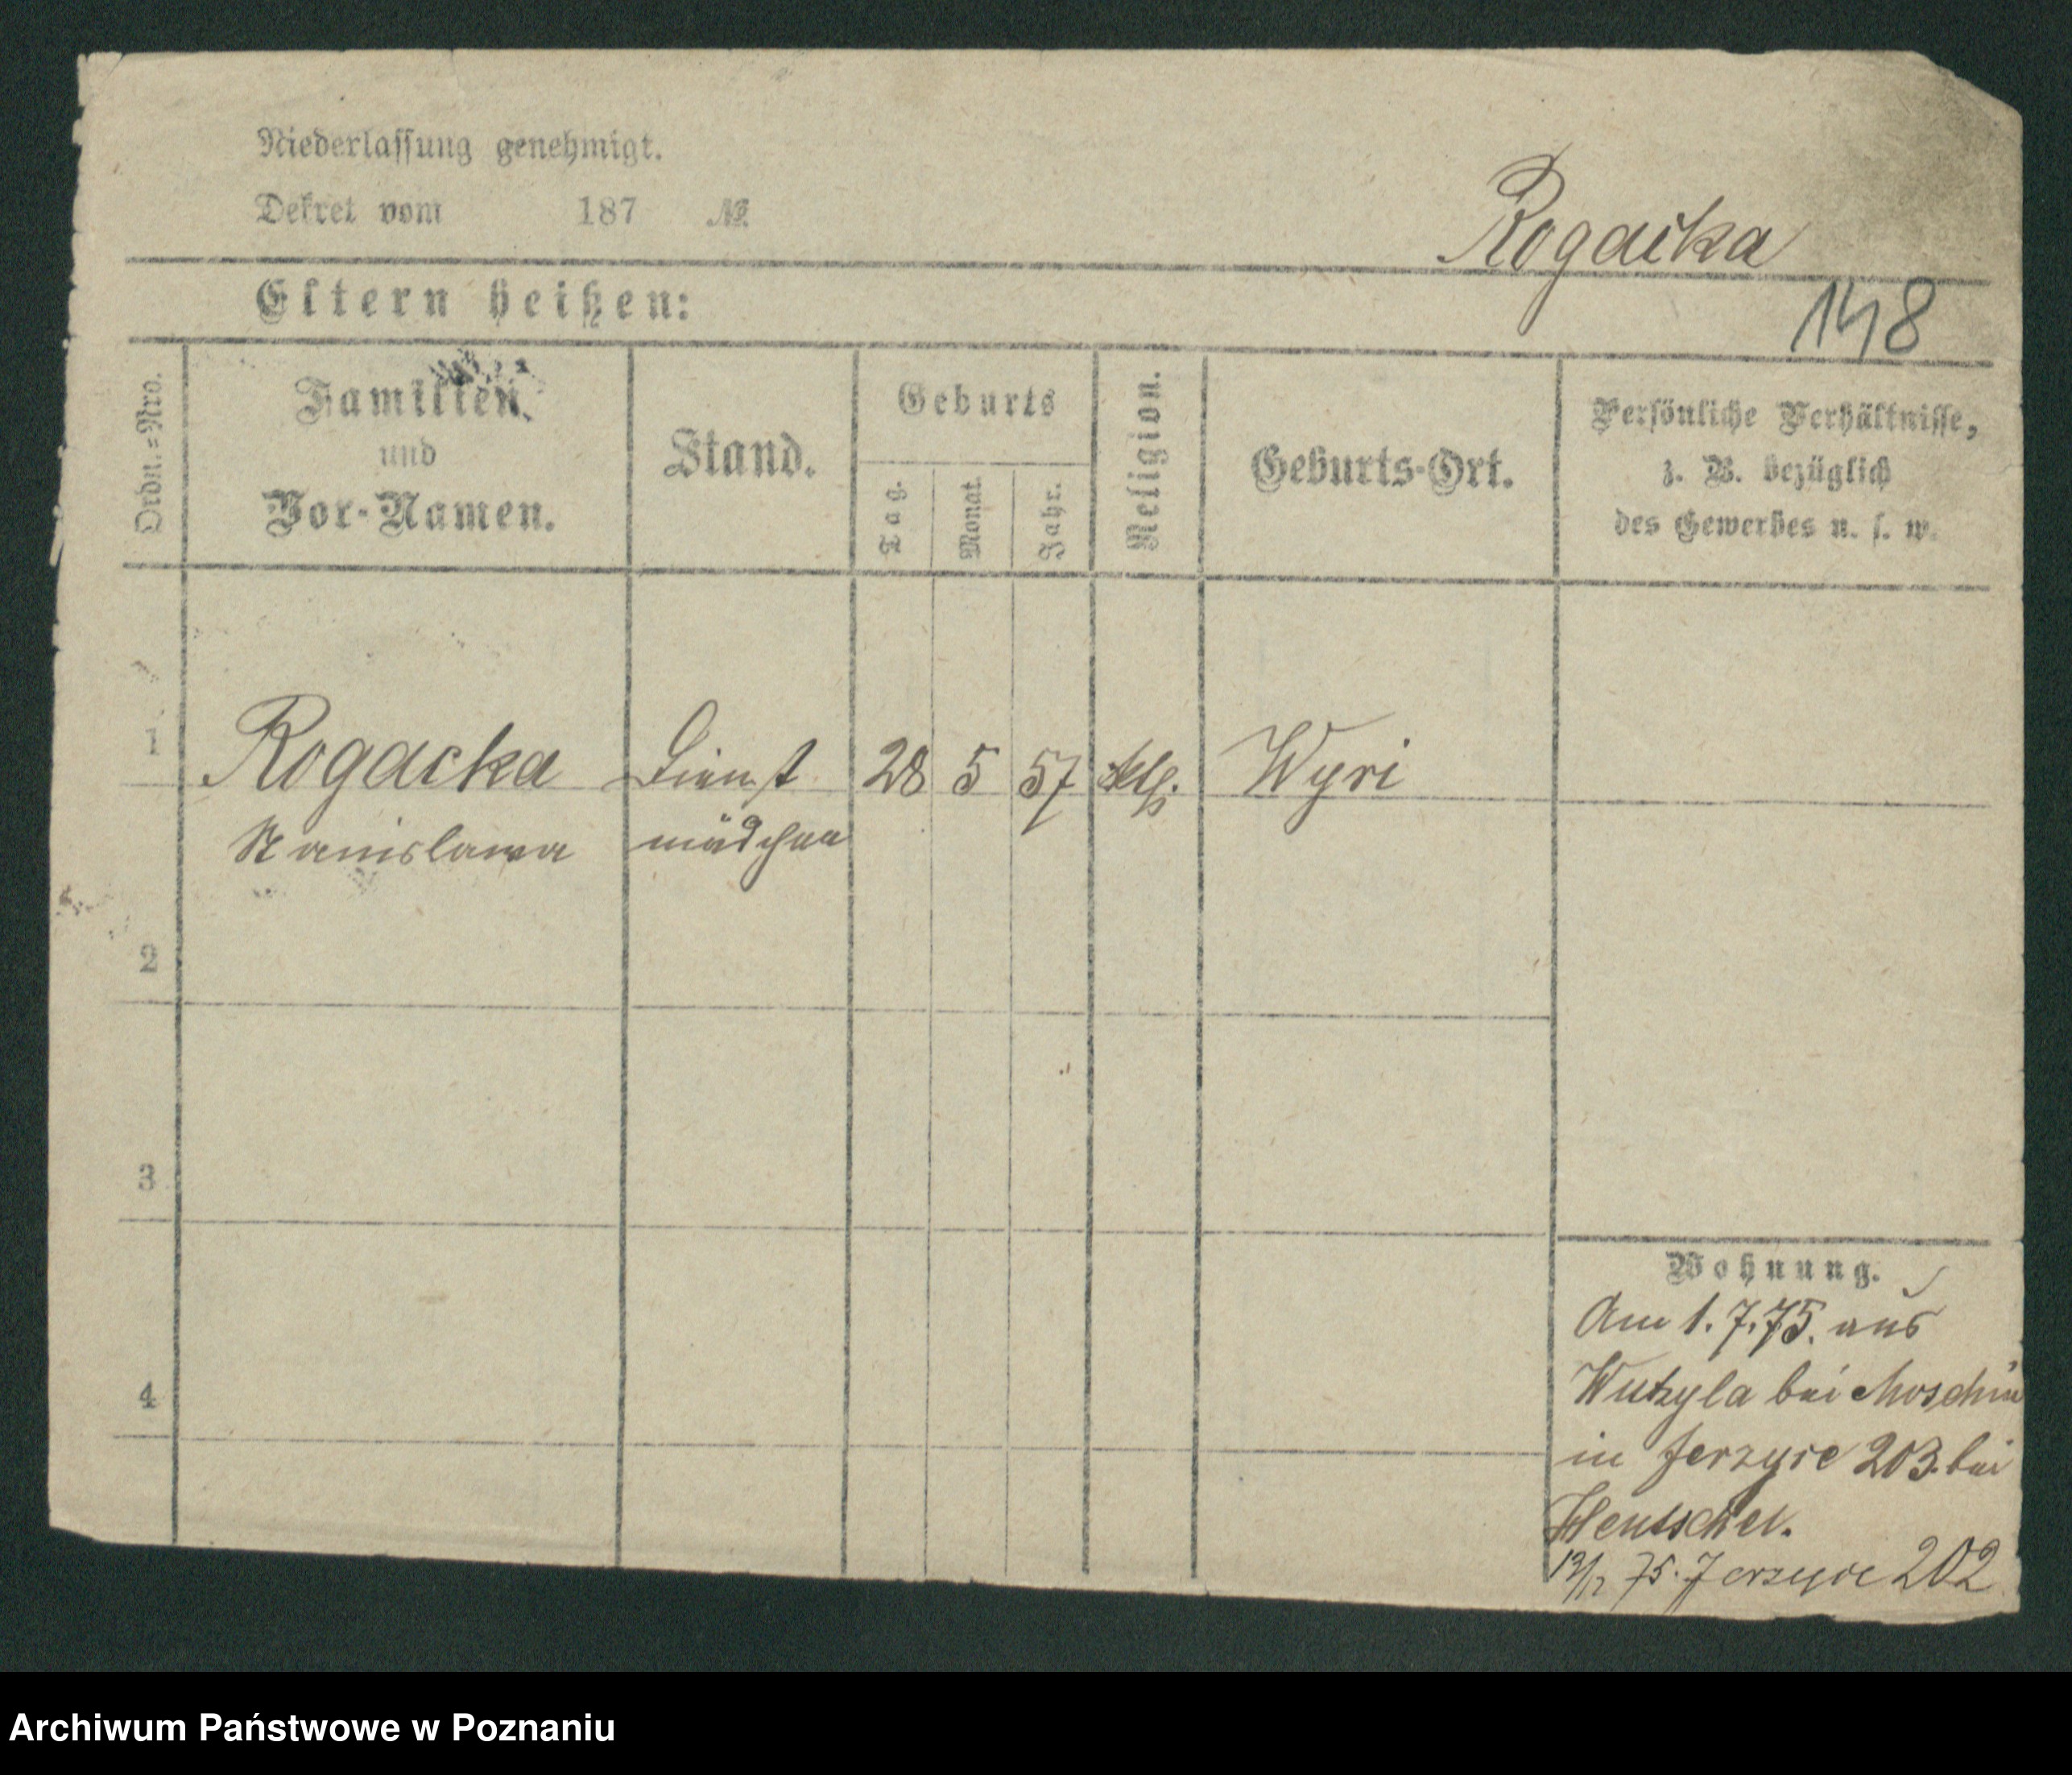 Niederlassung genehmigt.
Dekret vom 187 №
Rogacka
Eltern heißen:
148
Ordn.=Nro.
Familien
und
Vor-Namen.
Stand.
Geburts
Tag.
Monat.
Jahr.
Religion.
Geburts-Ort.
Persönliche Verhältnisse,
z. B. bezüglich
des Gewerbes u. s. w.
1 Rogacka Dienst 28 5 57 Wyri
Stanislawa mädchen
2
3
4
Wohnung.
Am 1. 7. 75. aus
bei Moschin
in Jerzyce 203. bei
Hentschel.
75. Jerzyce 202
Archiwum Państwowe w Poznaniu